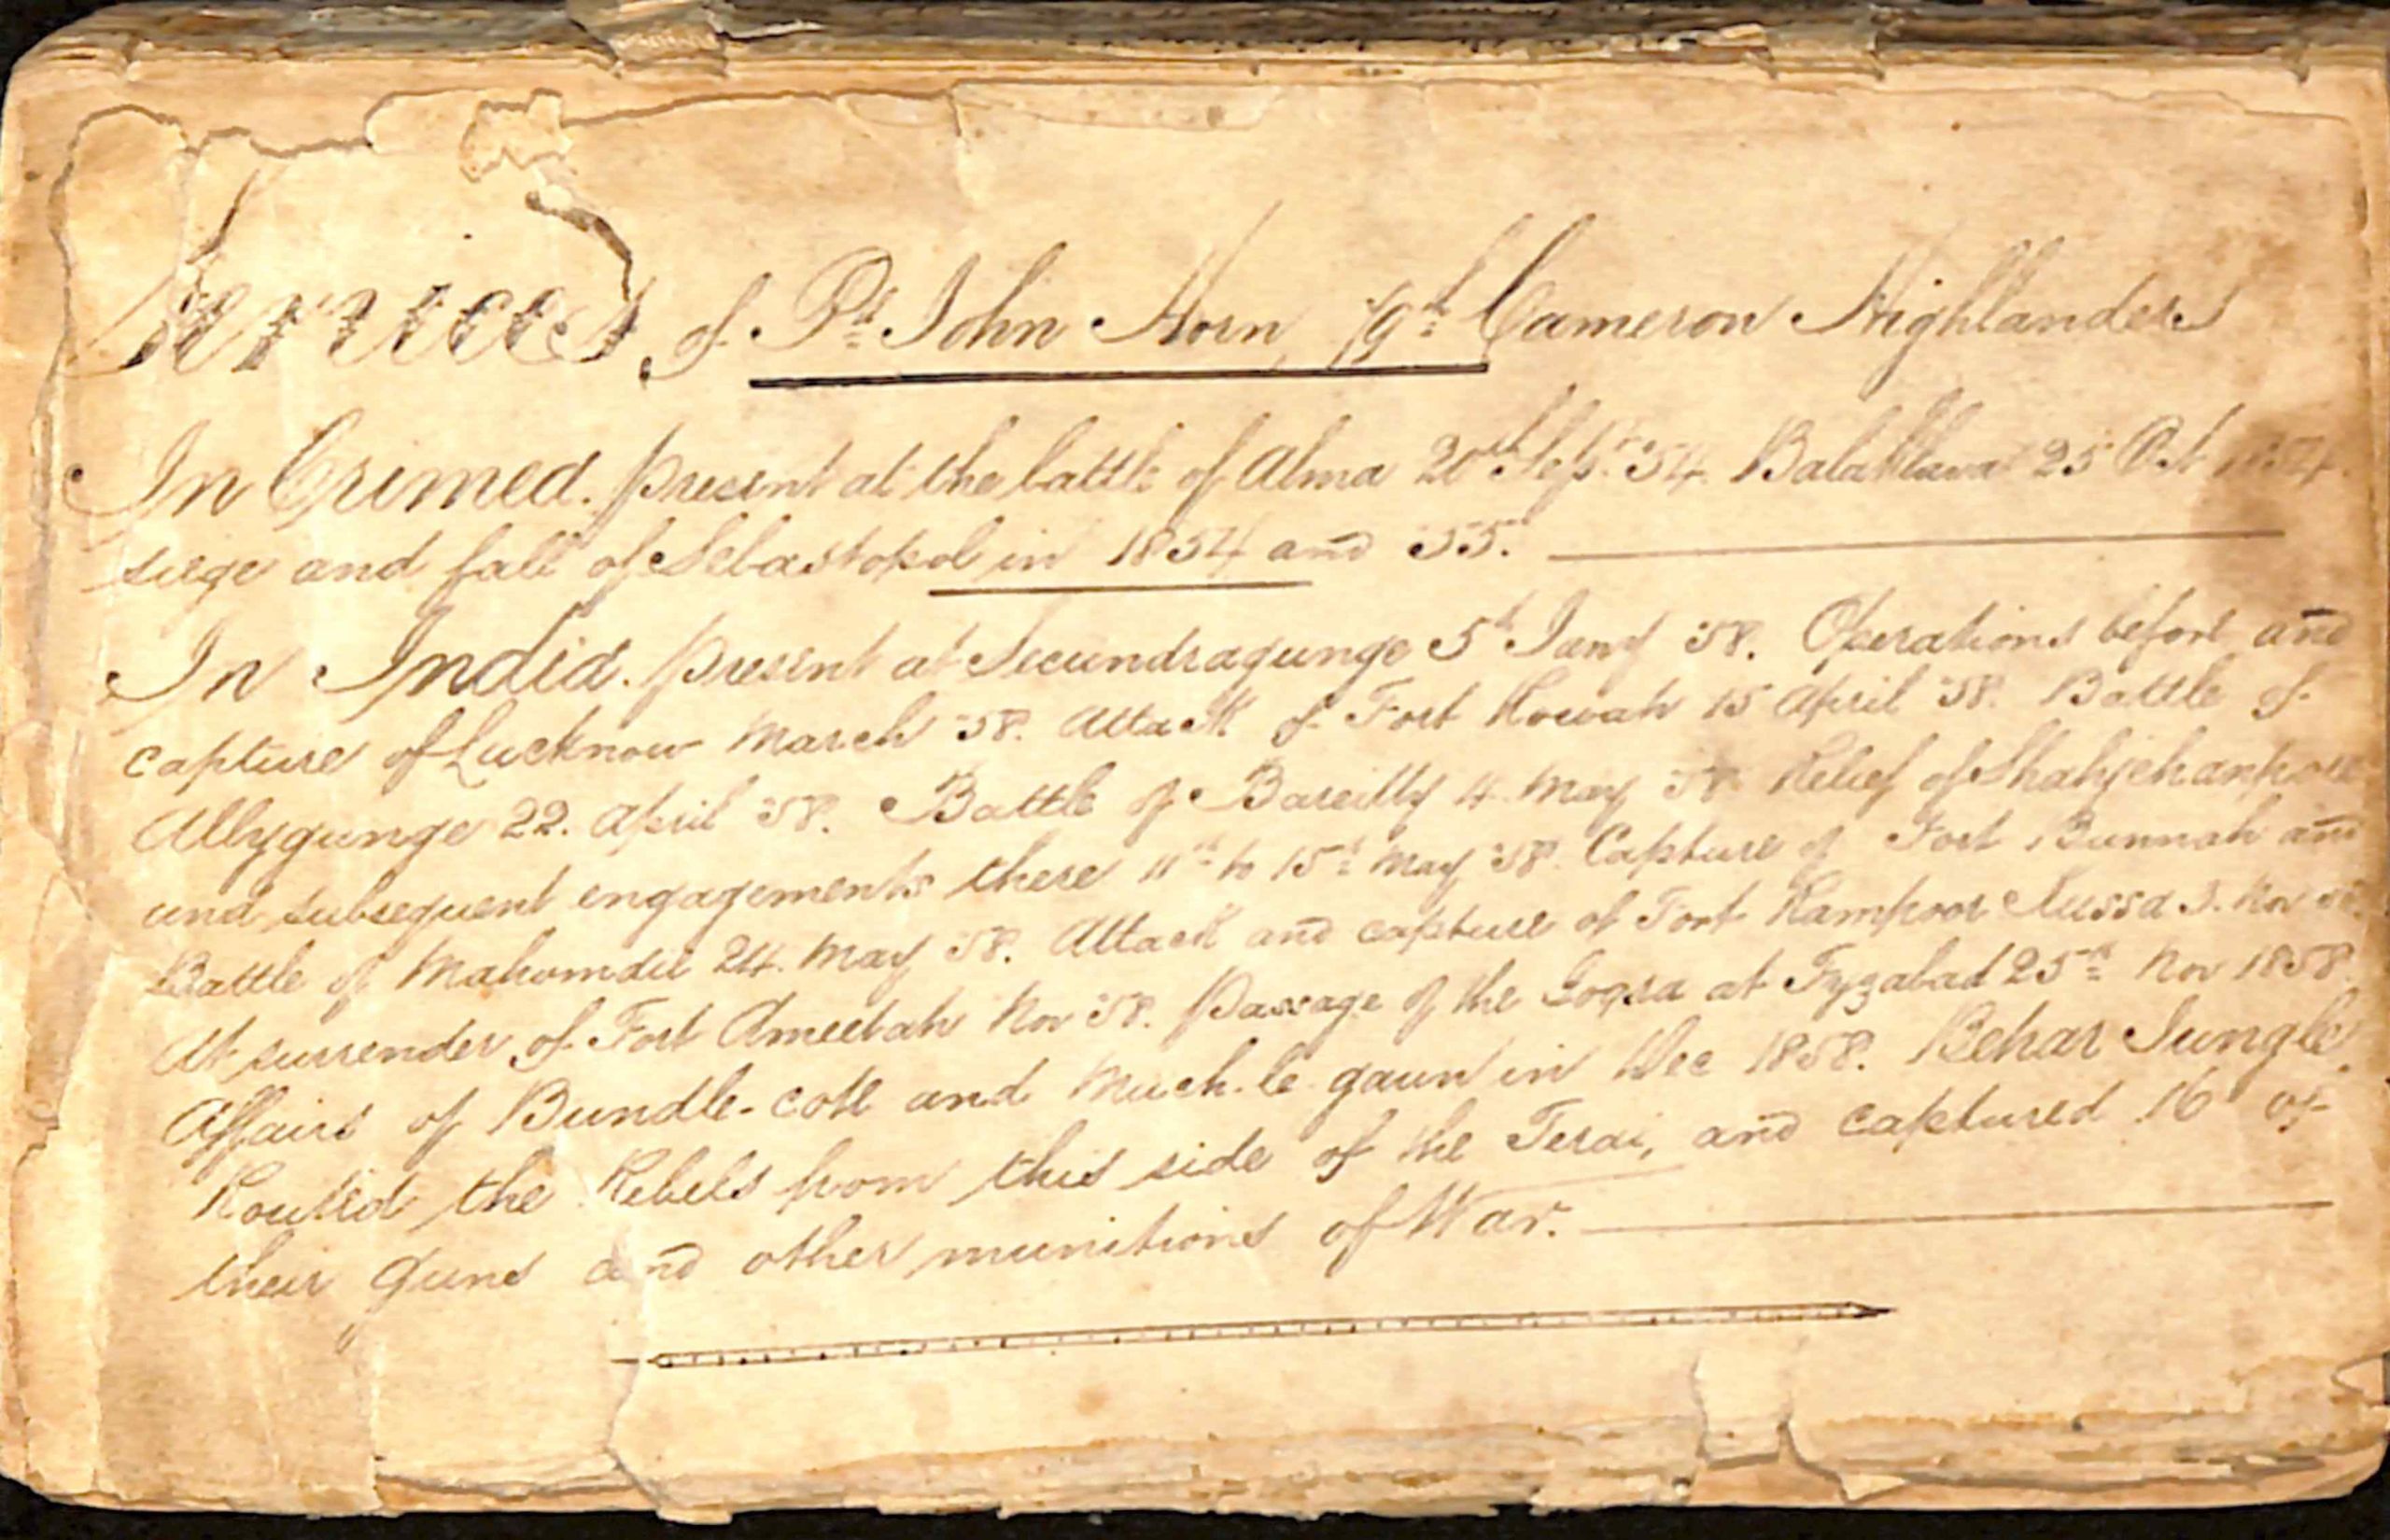 Services of Pt. John Horn, 79th Cameron Highlanders
In Crimea. present at the battle of Alma 20th Sept. '54. Balaklava 25 Oct 1854.
siege and fall of Sebastopol in 1854 and '55.
In India. present at Secundragunge 5th Jany '58. Operations before and
capture of Lucknow March '58. Attack of Fort Rowah 15 April '58. Battle of
Allygunge 22. April '58. Battle of Bareilly 4. May '58. Relief of Shahjehanpore
and subsequent engagements there 11th to 15th May '58. Capture of Fort Bunnah and
Battle of Mahomdie 24. May '58. Attack and capture of Fort Rampoor Kussa 3. Nov '58.
At surrender of Fort Ameetah Nov '58. Passage of the Gogra at Fyzabad 25th Nov 1858.
Affairs of Bundle-cote and Much-le-gaun in Dec 1858. Behar Jungle.
Routed the Rebels from this side of the Terai, and captured 16 of
their guns and other munitions of War.